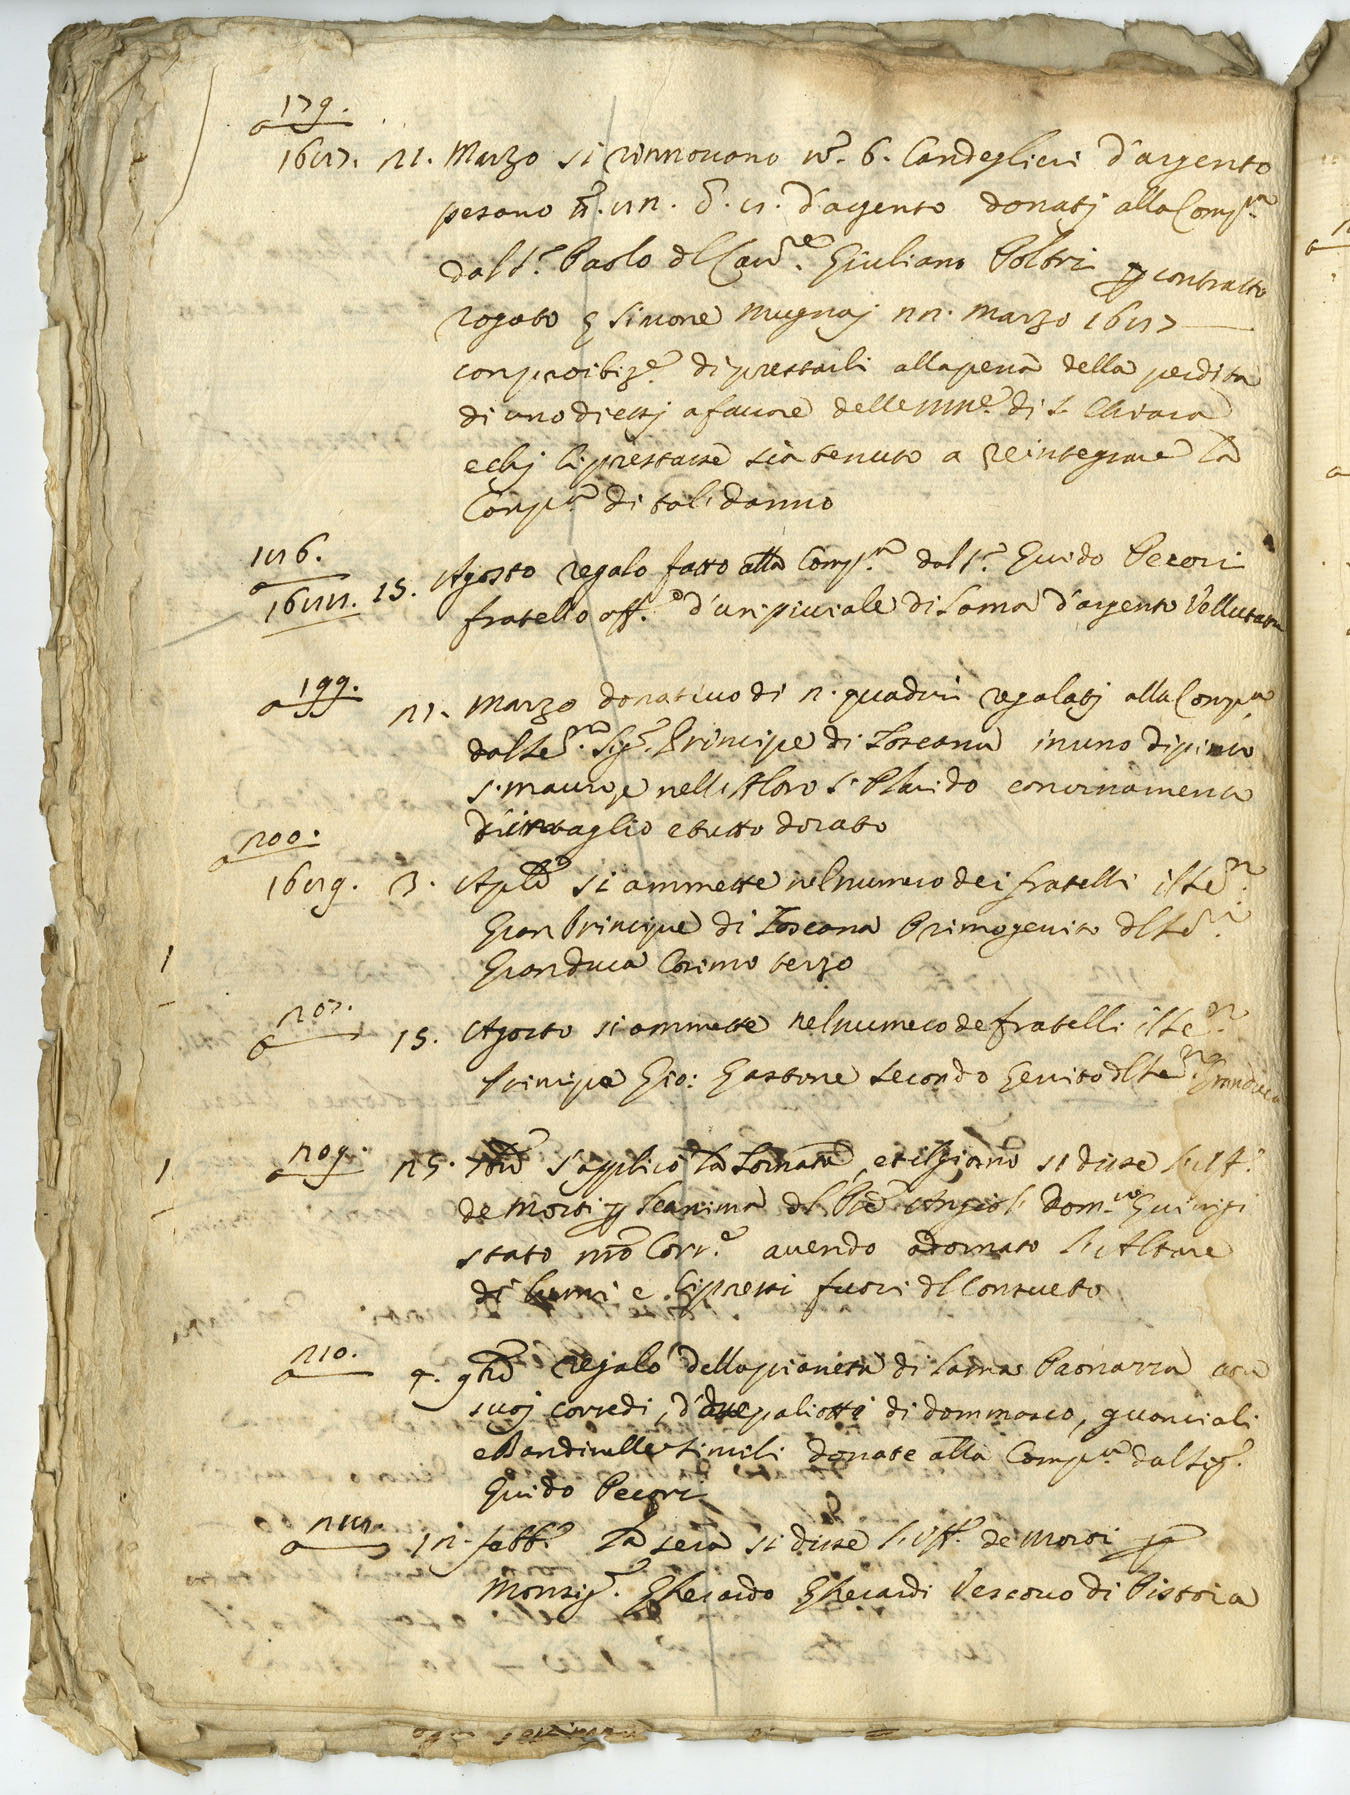 a 179.
1687. 21. Marzo si rinnovano n.º 6. Candeglieri d'argento
pesano ... d'argento donatj alla Comp.ª
dal S.r Paolo del Cav.re Giuliano Poltri p contratto
rogato p Simone Mugnaj 22. Marzo 1687
con proibiz.e di prestarli alla pena della perdita
di uno di essj a favore delle MM.e di S. Chiara
e chj li prestasse sia tenuto a reintegrare la
Comp.ª di tal danno
a 186.
1688. 15. Agosto regalo fatto alla Comp.ª dal S.r Guido Pecori
fratello off.º d'un piviale di Lama d'argento Vellutata
a 199. 21. Marzo donativo di 2. quadri regalatj alla Comp.ª
dal Ser.mo Sig.r Principe di Toscana in uno dipinto
S. Mauro, e nell'Altro S. Placido con ornamenta
d'intaglio e tutto dorato
a 200.
1689. 3. Aprile si ammette nel numero dei fratelli il Ser.mo
Gran Principe di Toscana Primogenito del Ser.mo
Gran Duca Cosimo terzo
a 207. 15. Agosto si ammette nel numero de fratelli il Ser.mo
Principe Gio: Gastone secondo Genito del Ser.mo Granduca
a 209. 25. s'applicò la Tornata, et il giorno si disse l'Uff.º
de Morti p l'anima del Pre Angiol' Dom.co Guinigi
stato nro Corr.e avendo adornato l'Altare
di lumi e Cipressi fuori del Consueto
a 210. 4. regalo della pianeta di Lama Paonazza con
suoj corredi, d'due paliotti di dommasco, guanciali
e Bandinelle simili donate alla Comp.ª dal Sig.r
Guido Pecori
a 12. febb.º la sera si disse l'Uff.º de Morti p
Monsig.r Gherardo Gherardi Vescovo di Pistoia